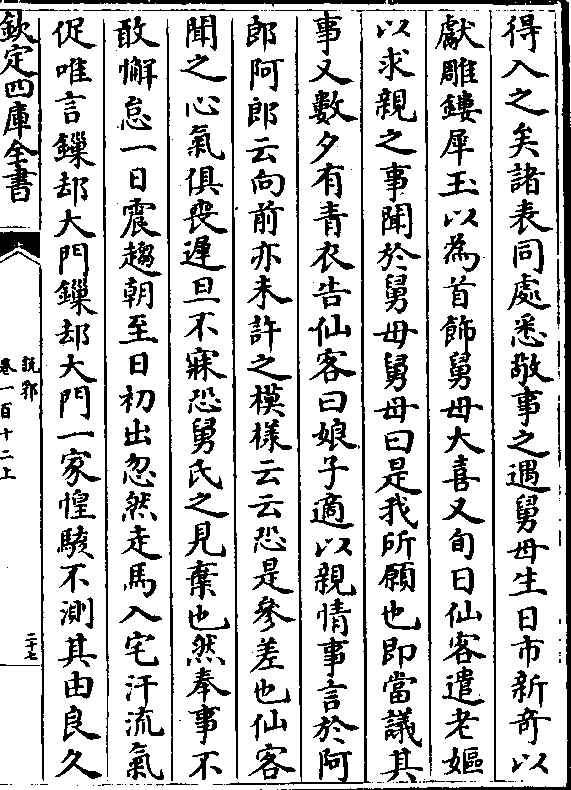 得入之矣諸表同處悉敬事之遇舅母生日市新奇以
獻雕鏤犀玉以為首飾舅母大喜又旬日仙客遣老嫗
以求親之事聞於舅母舅母曰是我所願也即當議其
事又數夕有青衣告仙客曰娘子適以親情事言於阿
郎阿郎云向前亦未許之模樣云云恐是參差也仙客
聞之心氣俱喪遲旦不寐恐舅氏之見棄也然奉事不
敢懈怠一日震趨朝至日初出忽然走馬入宅汗流氣
促唯言鏁却大門鏁却大門一家惶駭不測其由良久
欽定四庫全書
説郛
卷一百十二上
二十七